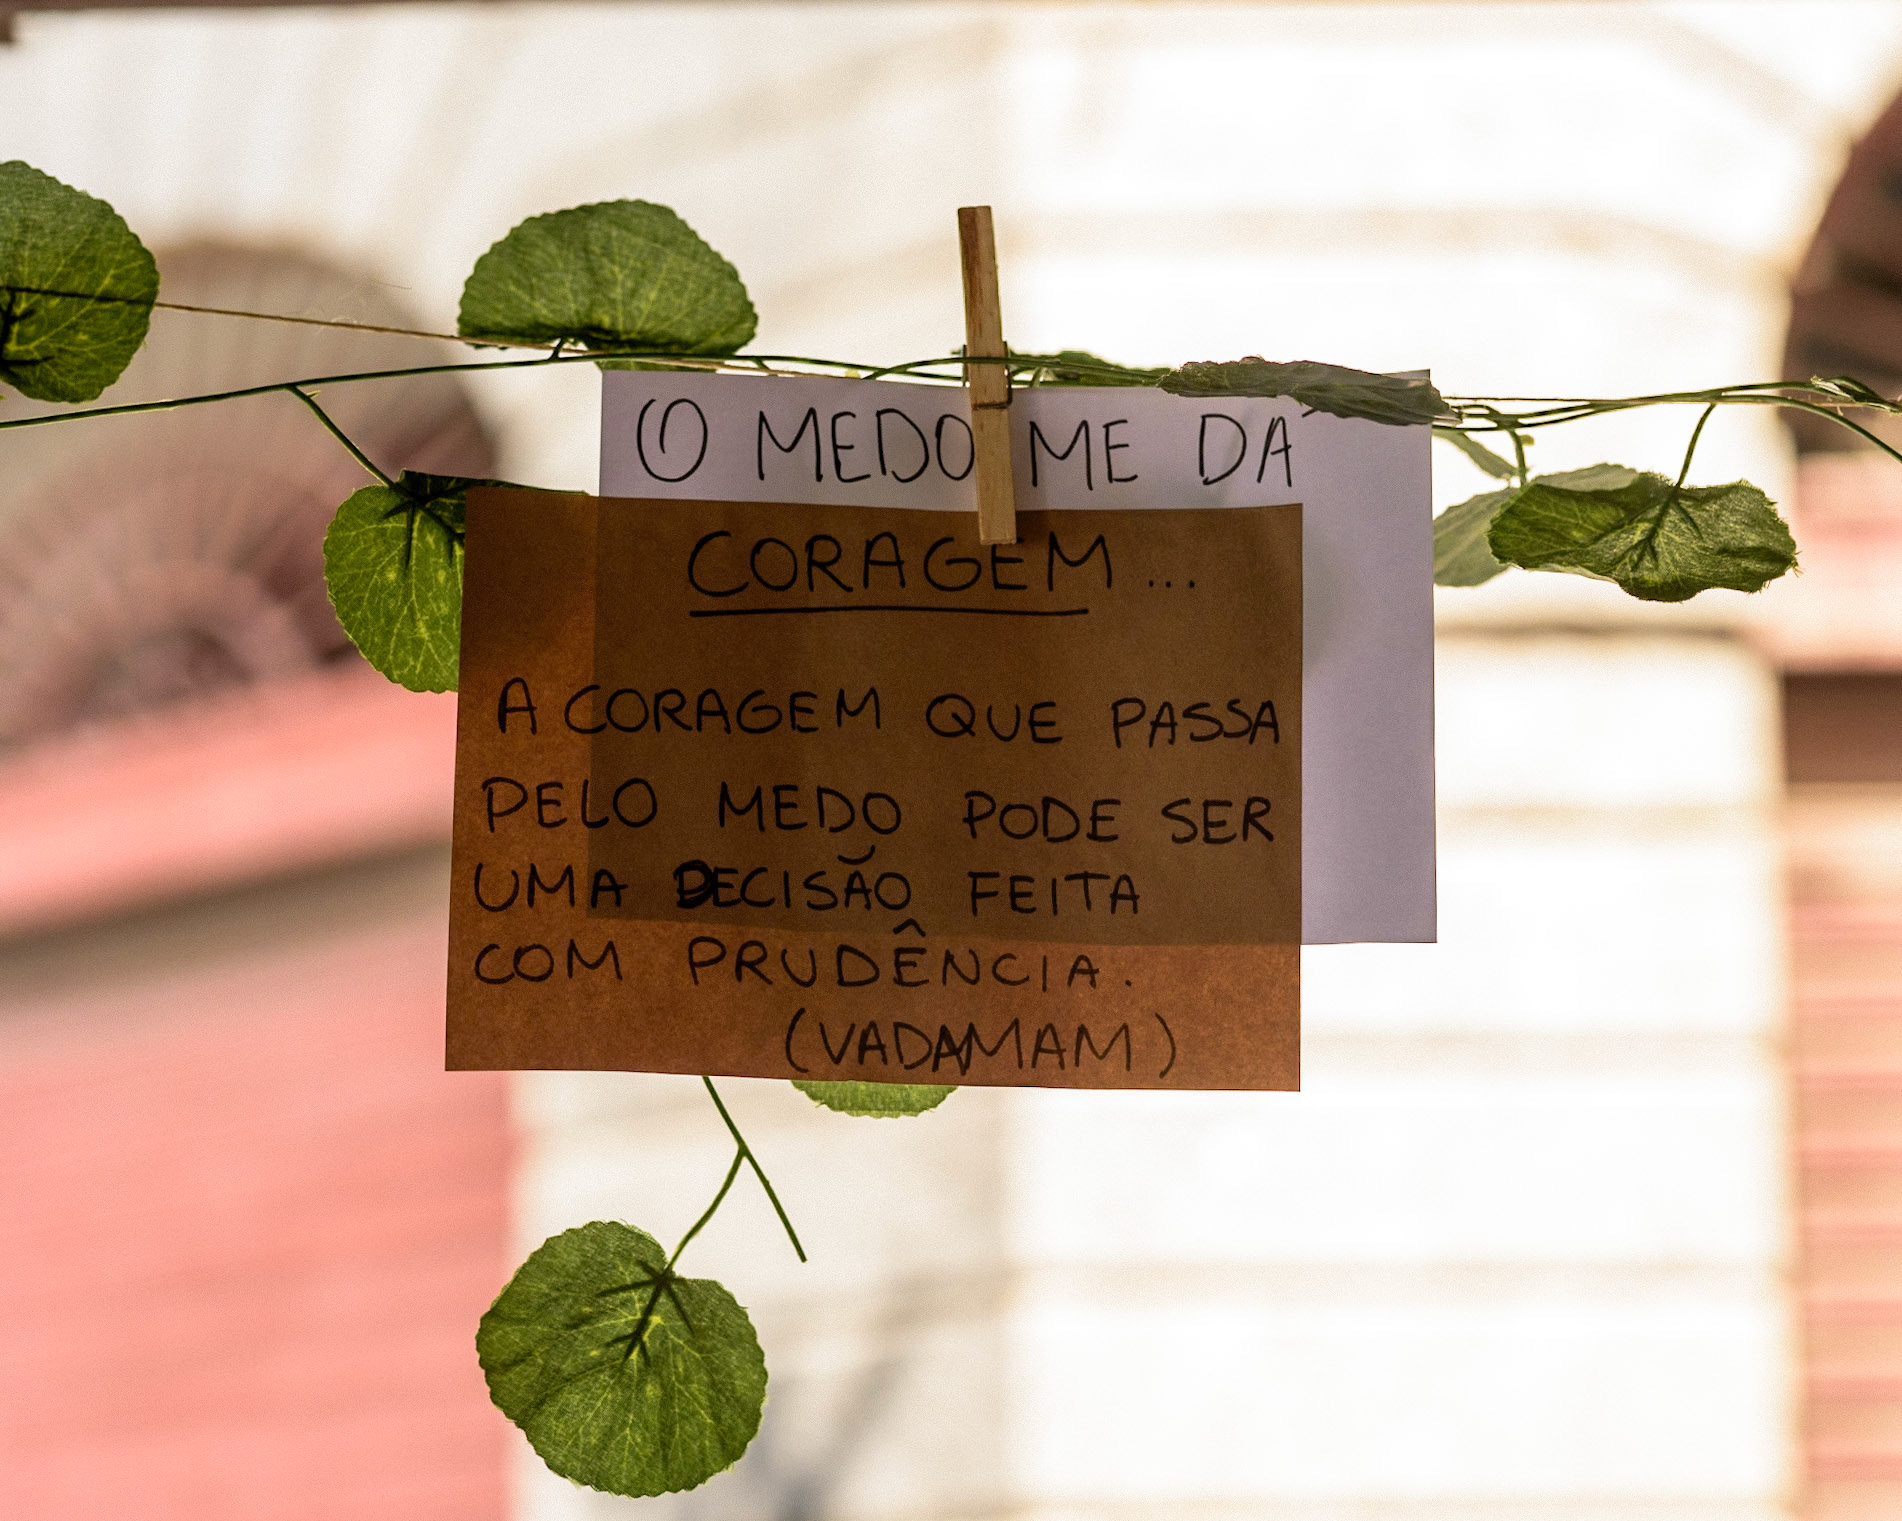 O MEDO ME DÁ
CORAGEM...
A CORAGEM QUE PASSA
PELO MEDO PODE SER
UMA DECISÃO FEITA
COM PRUDÊNCIA.
(VADAMAM)